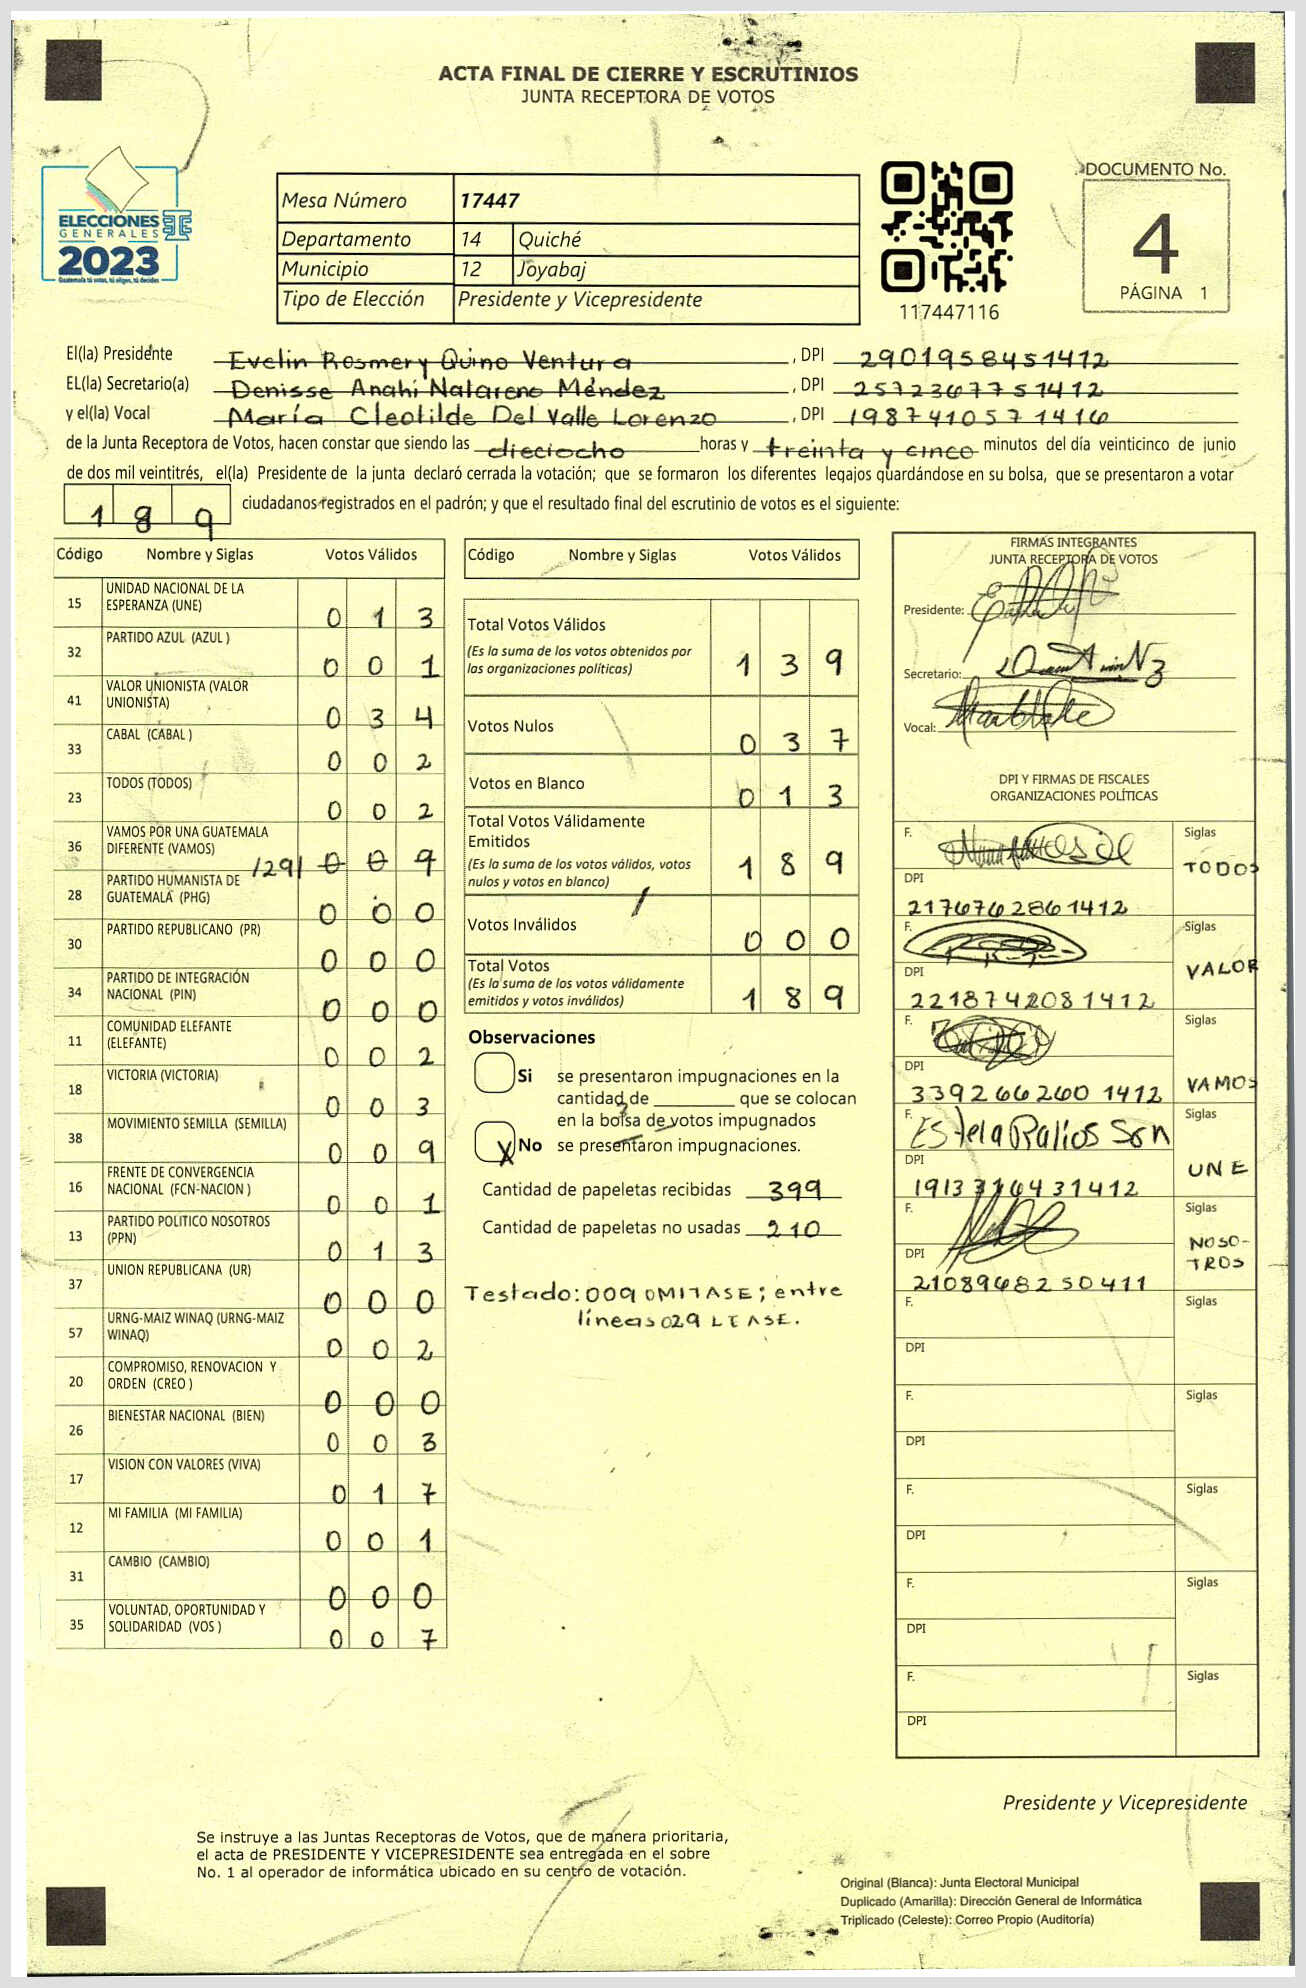 ACTA FINAL DE CIERRE Y ESCRUTINIOS
JUNTA RECEPTORA DE VOTOS
ELECCIONES
GENERALES
2023
Guatemala tú votas, tú eliges, tú decides
Mesa Número 17447
Departamento 14 Quiché
Municipio 12 Joyabaj
Tipo de Elección Presidente y Vicepresidente
117447116
DOCUMENTO No.
4
PÁGINA 1
El(la) Presidente Evelin Rosmery Quino Ventura , DPI 2901958451412
EL(la) Secretario(a) Denisse Anahí Natareno Méndez , DPI 2572367751412
y el(la) Vocal María Cleotilde Del Valle Lorenzo , DPI 1987410571416
de la Junta Receptora de Votos, hacen constar que siendo las dieciocho horas y treinta y cinco minutos del día veinticinco de junio
de dos mil veintitrés, el(la) Presidente de la junta declaró cerrada la votación; que se formaron los diferentes legajos guardándose en su bolsa, que se presentaron a votar
189 ciudadanos registrados en el padrón; y que el resultado final del escrutinio de votos es el siguiente:
Código Nombre y Siglas Votos Válidos
15 UNIDAD NACIONAL DE LA
ESPERANZA (UNE) 0 1 3
32 PARTIDO AZUL (AZUL ) 0 0 1
41 VALOR UNIONISTA (VALOR
UNIONISTA) 0 3 4
33 CABAL (CABAL ) 0 0 2
23 TODOS (TODOS) 0 0 2
36 VAMOS POR UNA GUATEMALA
DIFERENTE (VAMOS) 0 0 9
28 PARTIDO HUMANISTA DE
GUATEMALA (PHG) 0 0 0
30 PARTIDO REPUBLICANO (PR) 0 0 0
34 PARTIDO DE INTEGRACIÓN
NACIONAL (PIN) 0 0 0
11 COMUNIDAD ELEFANTE
(ELEFANTE) 0 0 2
18 VICTORIA (VICTORIA) 0 0 3
38 MOVIMIENTO SEMILLA (SEMILLA) 0 0 9
16 FRENTE DE CONVERGENCIA
NACIONAL (FCN-NACION ) 0 0 1
13 PARTIDO POLITICO NOSOTROS
(PPN) 0 1 3
37 UNION REPUBLICANA (UR) 0 0 0
57 URNG-MAIZ WINAQ (URNG-MAIZ
WINAQ) 0 0 2
20 COMPROMISO, RENOVACION Y
ORDEN (CREO ) 0 0 0
26 BIENESTAR NACIONAL (BIEN) 0 0 3
17 VISION CON VALORES (VIVA) 0 1 7
12 MI FAMILIA (MI FAMILIA) 0 0 1
31 CAMBIO (CAMBIO) 0 0 0
35 VOLUNTAD, OPORTUNIDAD Y
SOLIDARIDAD (VOS ) 0 0 7
Código Nombre y Siglas Votos Válidos
Total Votos Válidos
(Es la suma de los votos obtenidos por
las organizaciones políticas) 1 3 9
Votos Nulos 0 3 7
Votos en Blanco 0 1 3
Total Votos Válidamente
Emitidos
(Es la suma de los votos válidos, votos
nulos y votos en blanco) 1 8 9
Votos Inválidos 0 0 0
Total Votos
(Es la suma de los votos válidamente
emitidos y votos inválidos) 1 8 9
Observaciones
Si se presentaron impugnaciones en la
cantidad de ________ que se colocan
en la bolsa de votos impugnados
X No se presentaron impugnaciones.
Cantidad de papeletas recibidas 399
Cantidad de papeletas no usadas 210
Testado: 009 OMITASE; entre
líneas 029 LEASE.
FIRMAS INTEGRANTES
JUNTA RECEPTORA DE VOTOS
Presidente:
Secretario:
Vocal:
DPI Y FIRMAS DE FISCALES
ORGANIZACIONES POLÍTICAS
F. Siglas
TODOS
DPI
2176762861412
F. Siglas
VALOR
DPI
2218742081412
F. Siglas
VAMOS
DPI
3392662601412
F. Estela Ralios Son Siglas
UNE
DPI
1913316431412
F. Siglas
NOSO-
TROS
DPI
2108968250411
F. Siglas
DPI
F. Siglas
DPI
F. Siglas
DPI
F. Siglas
DPI
F. Siglas
DPI
Presidente y Vicepresidente
Se instruye a las Juntas Receptoras de Votos, que de manera prioritaria,
el acta de PRESIDENTE Y VICEPRESIDENTE sea entregada en el sobre
No. 1 al operador de informática ubicado en su centro de votación.
Original (Blanca): Junta Electoral Municipal
Duplicado (Amarilla): Dirección General de Informática
Triplicado (Celeste): Correo Propio (Auditoría)